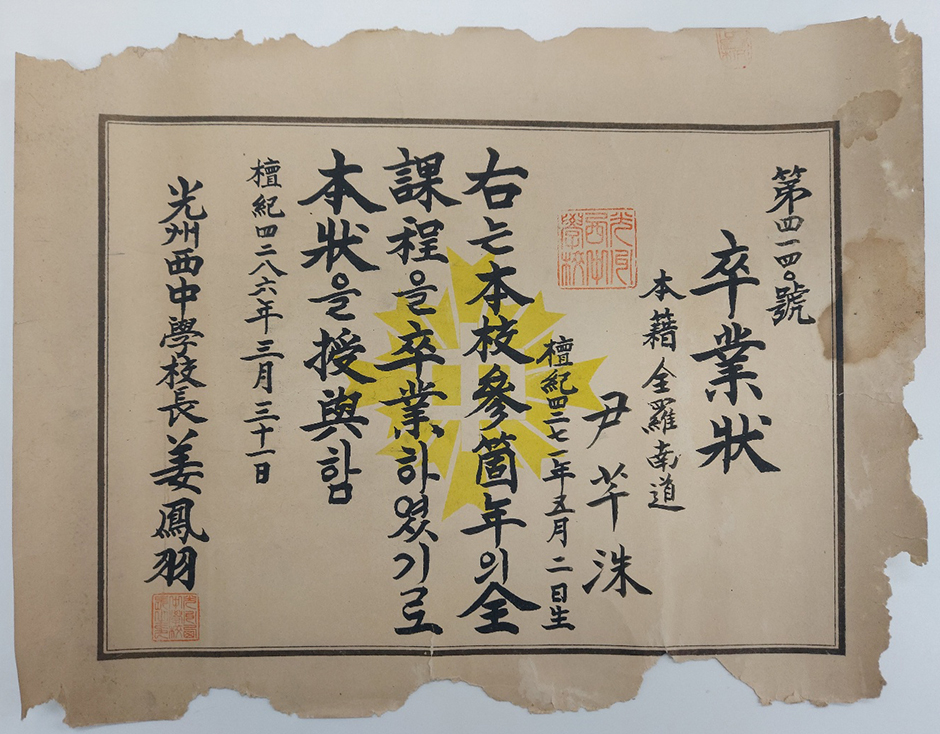 第四一四〇號
卒業狀
本籍 全羅南道
尹 洙
檀紀四二七一年五月二日生
光州西中學校
右는本校參箇年의全
課程을卒業하였기로
本狀을授與함
檀紀四二八六年 三月 三十一日
光州西中學校長 姜鳳羽